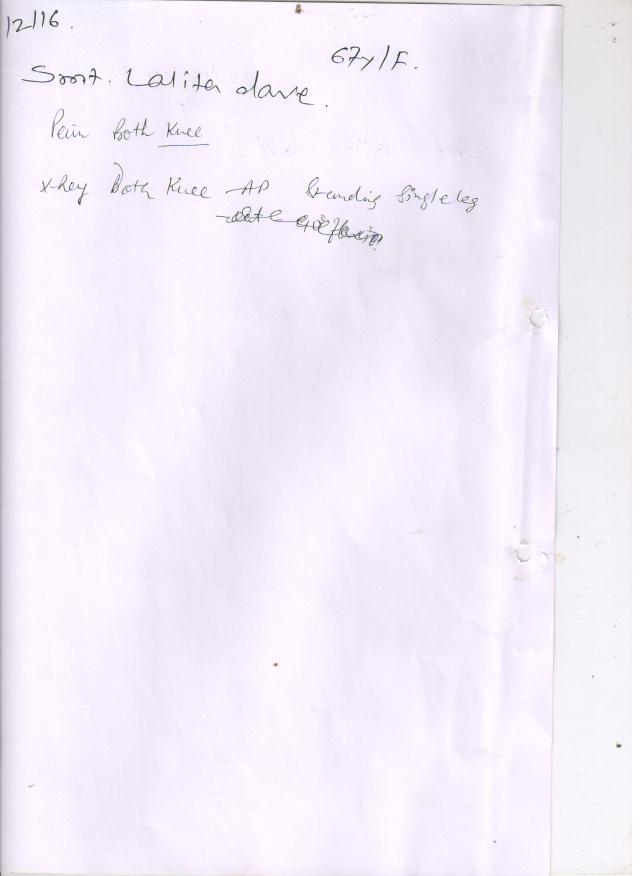 12/16.
67y/F.
Smt. Lalita dave.
Pain Both Knee
X-Ray Both Knee AP Standing Single leg